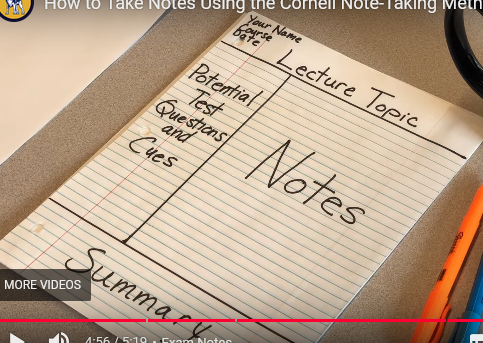 How to Take Notes Using the Cornell Note-Taking Meth
Your Name
Course
Date
Lecture Topic
Potential
Test
Questions
and
Cues
Notes
Summary
MORE VIDEOS
4:56 / 5:19 • Exam Notes